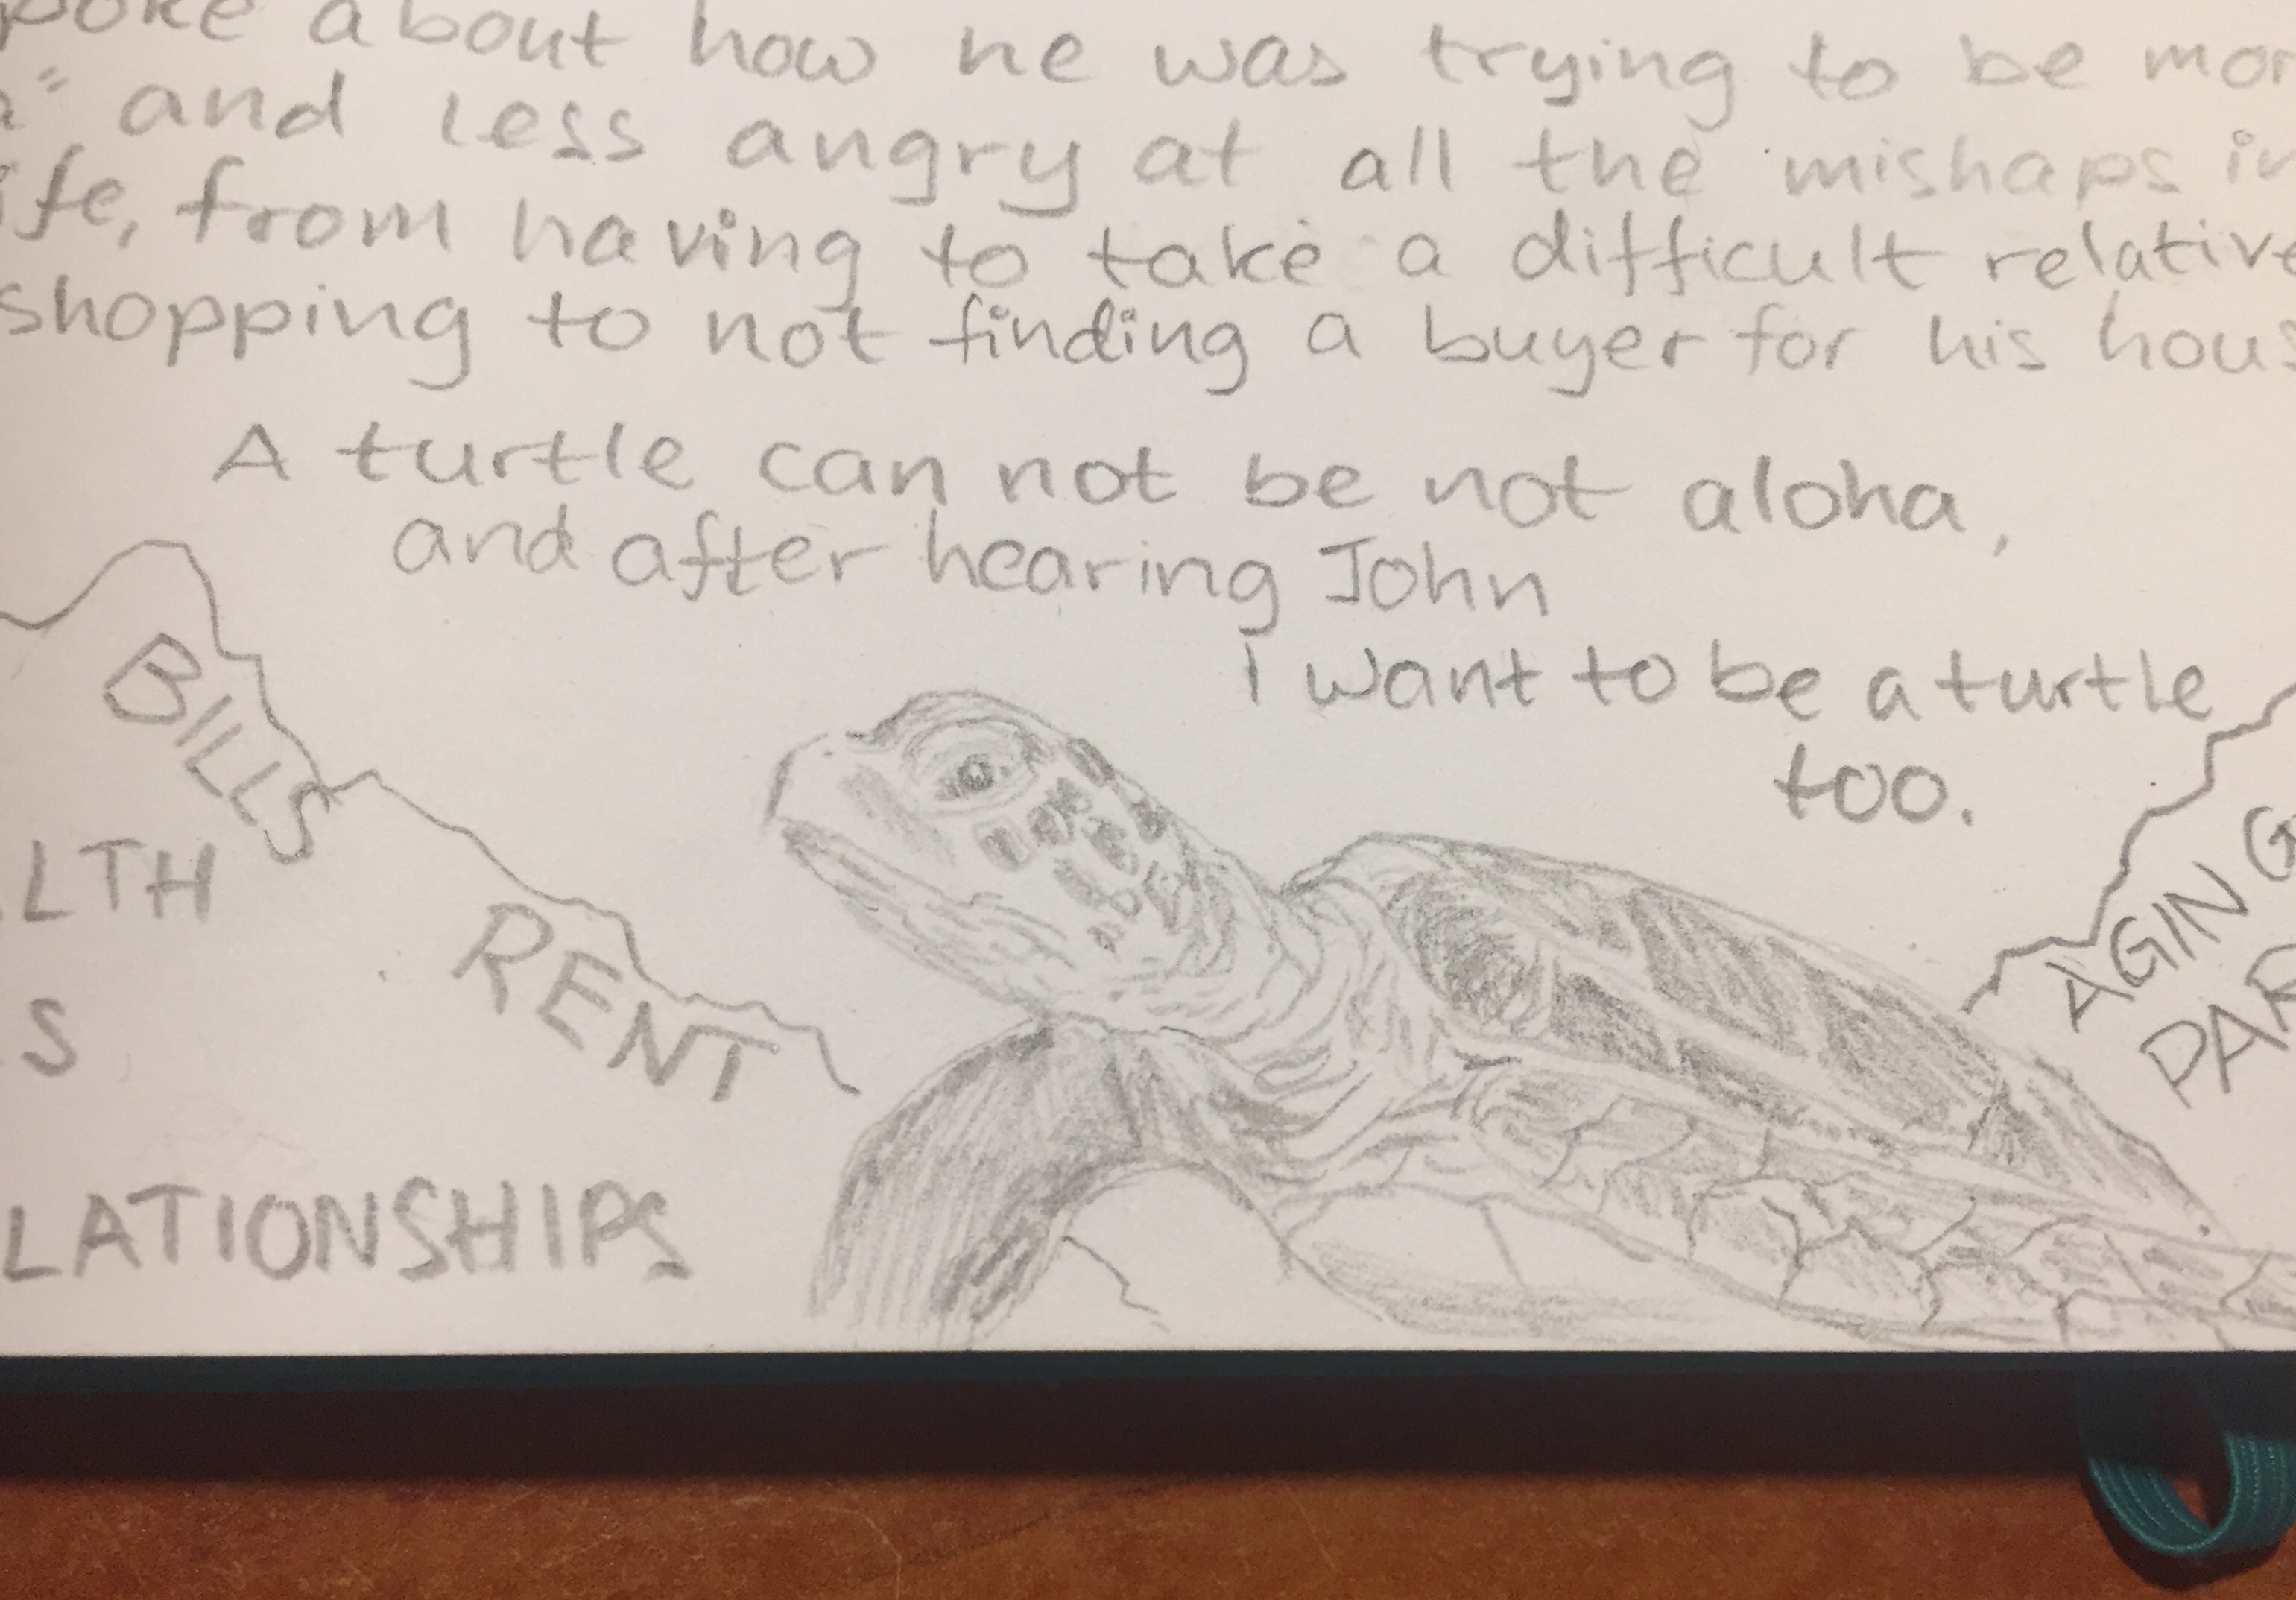 poke about how he was trying to be mor
and less angry at all the mishaps in
ife, from having to take a difficult relative
shopping to not finding a buyer for his hous
A turtle can not be not aloha,
and after hearing John
I want to be a turtle
too.
BILLS
LTH
RENT
S
LATIONSHIPS
AGING
PAR